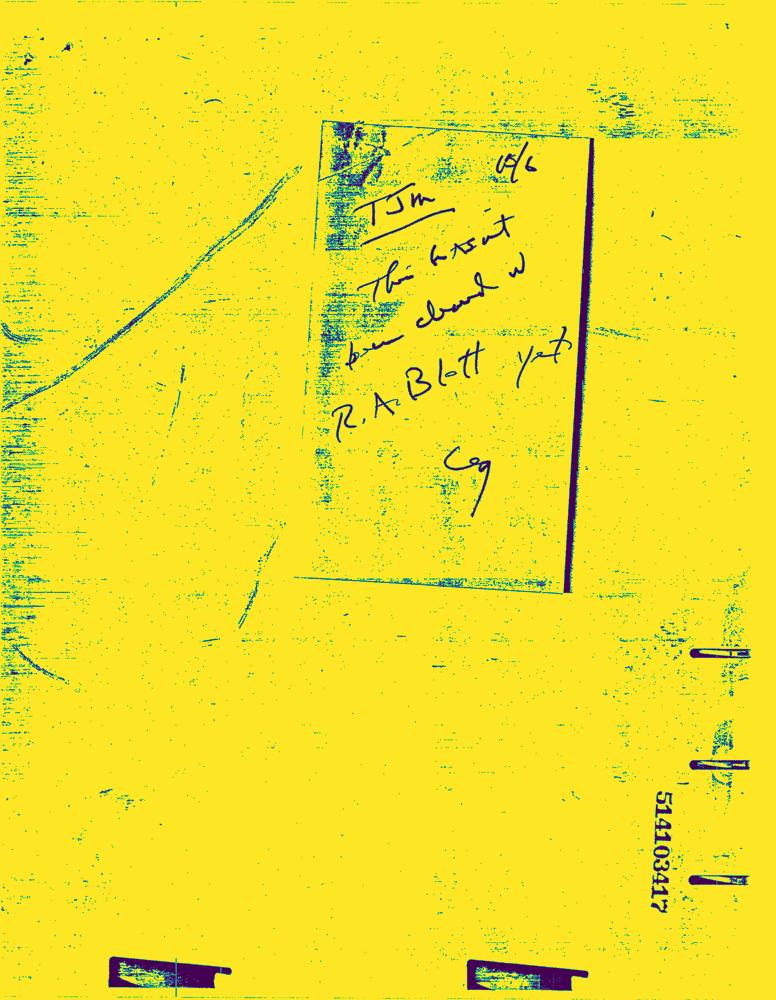 TJM
This hasn't
been cleared w
R. A. Blott yet
Ceg
514103417